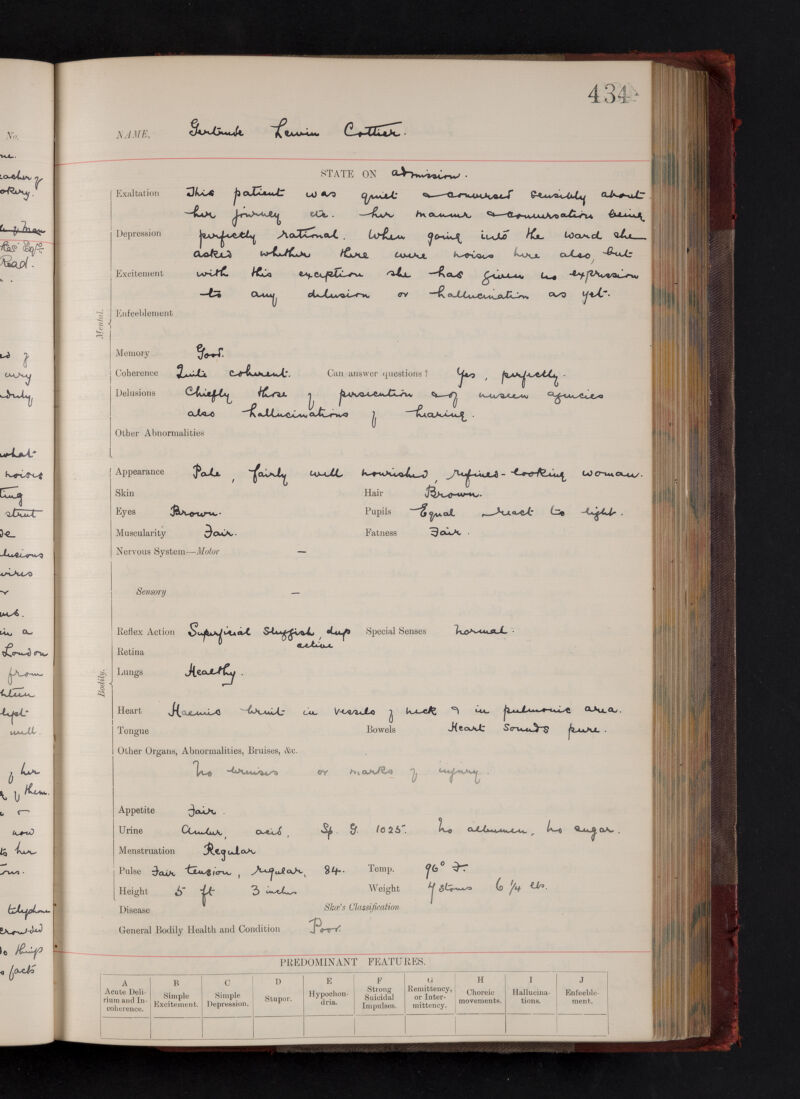 No.
ne.
eacher of
okery.
Read.
what
noises
ting
strut
se
lusions
wires
in a
London
from
hteen
lept
well.
of her
of them.
now
to her
telephone
crowded
do things
facts
434
NAME, Gertrude Lewin Cottier.
STATE ON admission.
Exaltation This patient was quiet & conversed sensibly about
her journey etc. her manner & conversation being
Depression perfectly rational. When going into the ward she
asked whether there were noises here also, but
Excitement with this exception she has given no expression
to any delusion or hallucination as yet.
Mental.
Enfeeblement
Memory Good.
Coherence Quite coherent. Can answer questions? Yes, perfectly.
Delusions Chiefly those of persecution & of unseen agencies
also hallucinations of hearing.
Other Abnormalities
Appearance Pale, fairly well nourished, refined-looking woman.
Skin Hair Brown.
Eyes Brown. Pupils Equal react to light.
Muscularity Fair. Fatness Fair.
Nervous System—Motor —
Sensory —
Reflex Action Superficial sluggish, deep Special Senses normal.
active
Retina
Bodily.
Lungs Healthy.
Heart Haemic bruit in vessels of neck & in pulmonic area.
Tongue Bowels Heart Sounds pure.
Other Organs, Abnormalities, Bruises, &c.
No bruises or marks of injury.
Appetite Fair.
Urine Amber, acid, Sp. G. 1025. No albumen, no sugar.
Menstruation Regular
Pulse Fair tension, regular, 84. Temp. 96° F.
Height 5 ft 3 inches Weight 7 stones 6 1/4 lbs.
Disease Skae's Classification
General Bodily Health and Condition Poor.
PREDOMINANT FEATURES.
A B C D E F G H I J
Acute Deli- Simple Simple Stupor. Hypochon- Strong Remittency, Choreic Hallucina- Enfeeble-
rium and In- Excitement. Depression. dria. Suicidal or Inter- movements. tions. ment.
coherence. Impulses. mittency.